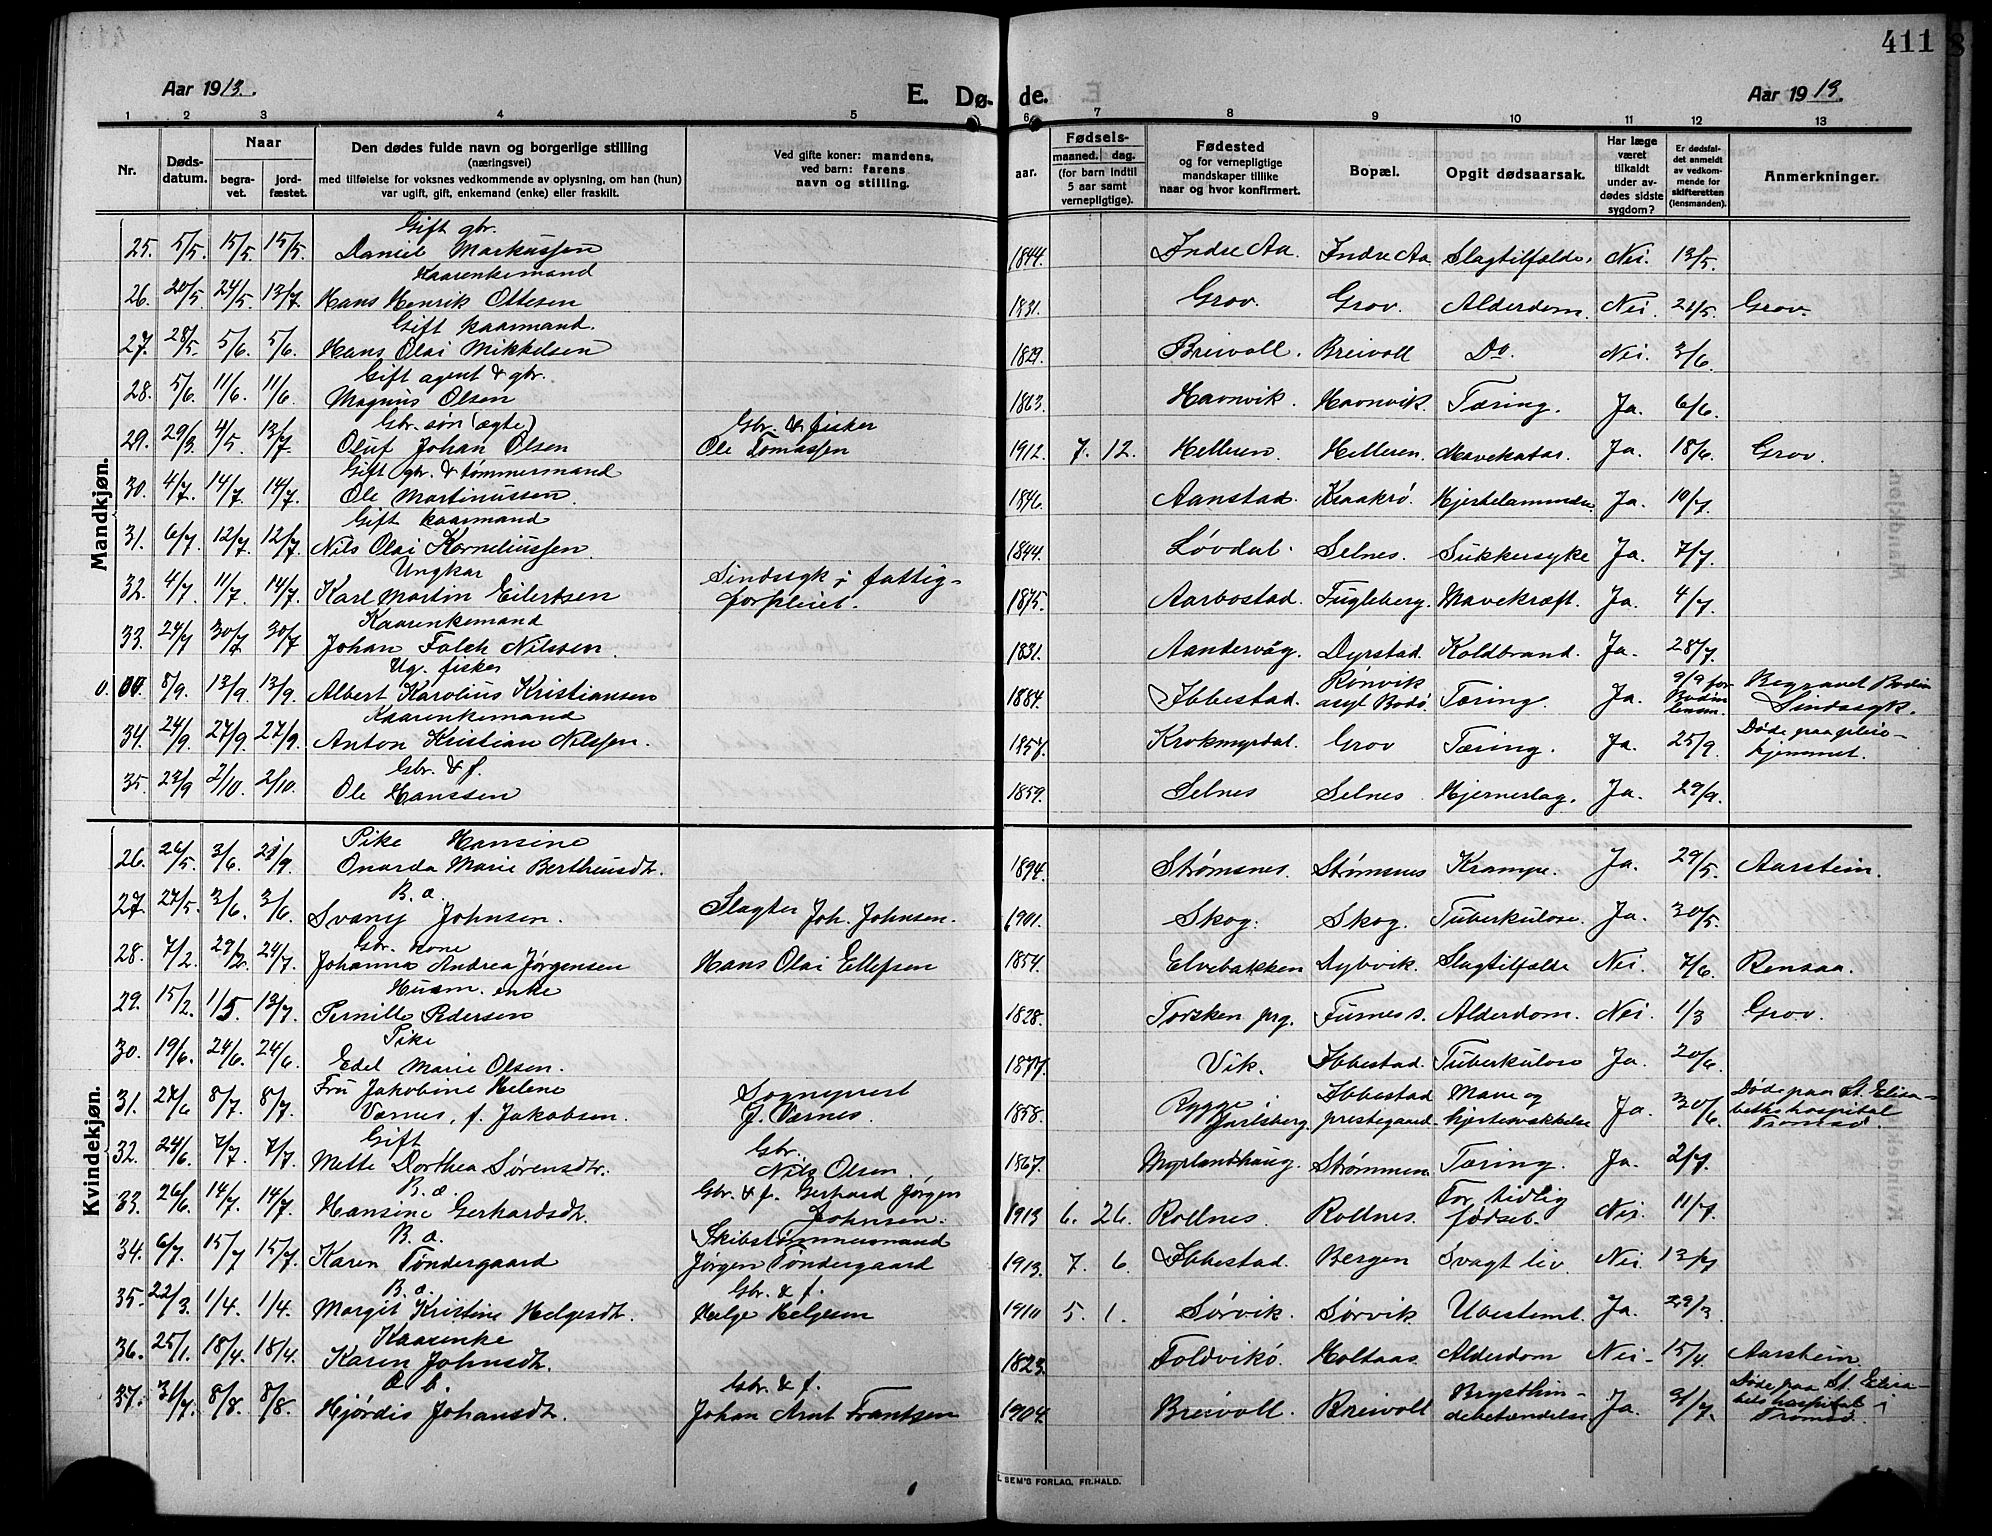 411
Aar 1913.
E. Dø- de.
Aar 1913.
1 2 3 4 5 6 7 8 9 10 11 12 13
Nr.
Døds-datum.
Naar
begra-vet.
jord-fæstet.
Den dødes fulde navn og borgerlige stilling
(næringsvei)
med tilføielse for voksnes vedkommende av oplysning, om han (hun)
var ugift, gift, enkemand (enke) eller fraskilt.
Ved gifte koner: mandens,
ved barn: farens
navn og stilling.
Fødsels-
aar.
maaned. dag.
(for barn indtil
5 aar samt
vernepligtige).
Fødested
og for vernepligtige
mandskaper tillike
naar og hvor konfirmert.
Bopæl.
Opgit dødsaarsak.
Har læge
været
tilkaldt
under av-
dødes sidste
sygdom?
Er dødsfal-
det anmeldt
av vedkom-
mende for
skifteretten
(lensmanden).
Anmerkninger.
Mandkjøn.
Gift gbr.
25. 5/5. 15/5 15/5 Daniel Markussen 1844. Indre Aa. Indre Aa Slagtilfælde. Nei. 13/5.
Kaarenkemand
26. 20/5 24/5 13/7. Hans Henrik Ottesen 1831. Grov. Grov. Alderdom. Nei. 21/5. Grov.
Gift kaarmand.
27. 28/5. 5/6. 5/6. Hans Olai Mikkelsen 1829. Breivoll. Breivoll Do. Nei. 3/6
Gift agent & gbr.
28. 5/6. 11/6. 11/6. Magnus Olsen 1863. Havnvik. Havnvik. Tæring. Ja. 6/6.
Gbr. søn (ægte) Gbr. & fisker
29. 29/3. 4/5. 13/7. Oluf Johan Olsen Ole Tomassen 1912. 7. 12. Helleren. Helleren. Mavekatar. Ja. 18/6. Grov.
Gift gbr. & tømmermand
30. 4/7. 14/7. 14/7. Ole Martinussen. 1846. Aanstad. Kraakrø. Ja. 10/7.
Gift kaarmand
31. 6/7. 12/7. 12/7. Nils Olai Korneliussen. 1844. Løvdal. Selnes. Sukkersyke Ja. 7/7.
Ungkar Sindssyk i fattig-
32. 4/7. 11/7. 14/7. Karl Martin Eilertsen forpleiet. 1875. Aarbostad. Fugleberg. Mavekræft. Ja. 4/7.
Kaarenkemand
33. 24/7 30/7 30/7 Johan Falch Nilssen. 1831. Aandervåg. Dyrstad. Koldbrand. Ja. 28/7.
Ug. fisker Rønvik 9/9 for Begravet Bodin
0. 8/9. 13/9. 13/9. Albert Karolius Kristiansen 1884. Ibbestad. asyl Bodø. Tæring. Ja. Bodin lensm. Sindssyk.
Kaarenkemand Døde paa pleie-
34. 24/9. 27/9. 27/9. Anton Kristian Nilssen. 1857. Krokmyrdal. Grov Tæring. Ja. 25/9. hjemmet.
Gbr. & f.
35. 23/9 2/10. 2/10. Ole Hanssen 1859. Selnes Selnes Hjerneslag. Ja. 29/9.
Kvindekjøn.
Pike Hansine
26. 26/5. 3/6. 21/9. Onarda Marie Bertheusdt. 1894. Strømsnes. Strømsnes Krampe. Ja. 29/5. Aarstein.
B. æ.
27. 27/5. 3/6. 3/6. Svany Johnsen. Slagter Joh. Johnsen. 1901. Skog. Skog. Tuberkulose. Ja. 30/5.
Gbr. kone
28. 7/2. 24/7. Johanna Andrea Jørgensen Hans Olai Ellefsen 1854. Elvebakken Dybvik. Slagtilfælde Nei. 7/6. Rensaa.
Husm. enke
29. 15/2. 1/5. 13/7. Pernille Pedersen 1828. Torsken prg. Furnes s. Alderdom. Nei. 1/3 Grov.
Pike
30. 19/6. 24/6. 24/6 Edel Marie Olsen. 1877. Vik. Ibbestad. Tuberkulose Ja. 20/6
Fru Jakobine Helene Sogneprest Rygge i Ibbestad Mave og Døde paa St. Elisa-
31. 27/6 8/7. 8/7. Værnes, f. Jakobsen. J. Værnes. 1858. Jarlsberg. prestegaard. hjertesvækkelse Ja. 30/6 bethshospital Tromsø.
Gift Gbr.
32. 24/6. 7/7. 7/7. Mette Dorthea Sørensdt. Nils Olsen. 1867. Myrlandhaug. Strømmen Tæring. Ja. 2/7.
B. æ. Gbr. & f. Gerhard Jørgen For tidlig
33. 26/6. 14/7. 14/7. Hansine Gerhardsdt. Johnsen. 1913 6. 26. Rollnes. Rollnes. fødsel. Nei. 11/7.
B. æ. Skibstømmermand
34. 6/7. 15/7 15/7. Karen Tøndergaard Jørgen Tøndergaard 1913. 7. 6. Ibbestad. Bergen Svagt liv. Nei. 13/7.
B. æ. Gbr. & f.
35. 22/3. 1/4. 1/4. Margit Kristine Helgesdt. Helge Helgesen 1910 5. 1. Sørvik. Sørvik Ubestemt. Ja. 29/3.
Kaarenke
36. 25/1. 18/4. 18/4. Karen Johnsdt. 1823. Foldvikø. Holtaas. Alderdom Nei. 15/4. Aarstein.
Gbr. & f. Brysthin- Døde paa St. Elisa-
37. 31/7. 8/8. 8/8. Hjørdis Johansdt. Johan Arnt Frantsen 1904. Breivoll. Breivoll debetændelse Ja. 31/7. bets hospital i Tromsø.
SEM'S FORLAG, FR.HALD.